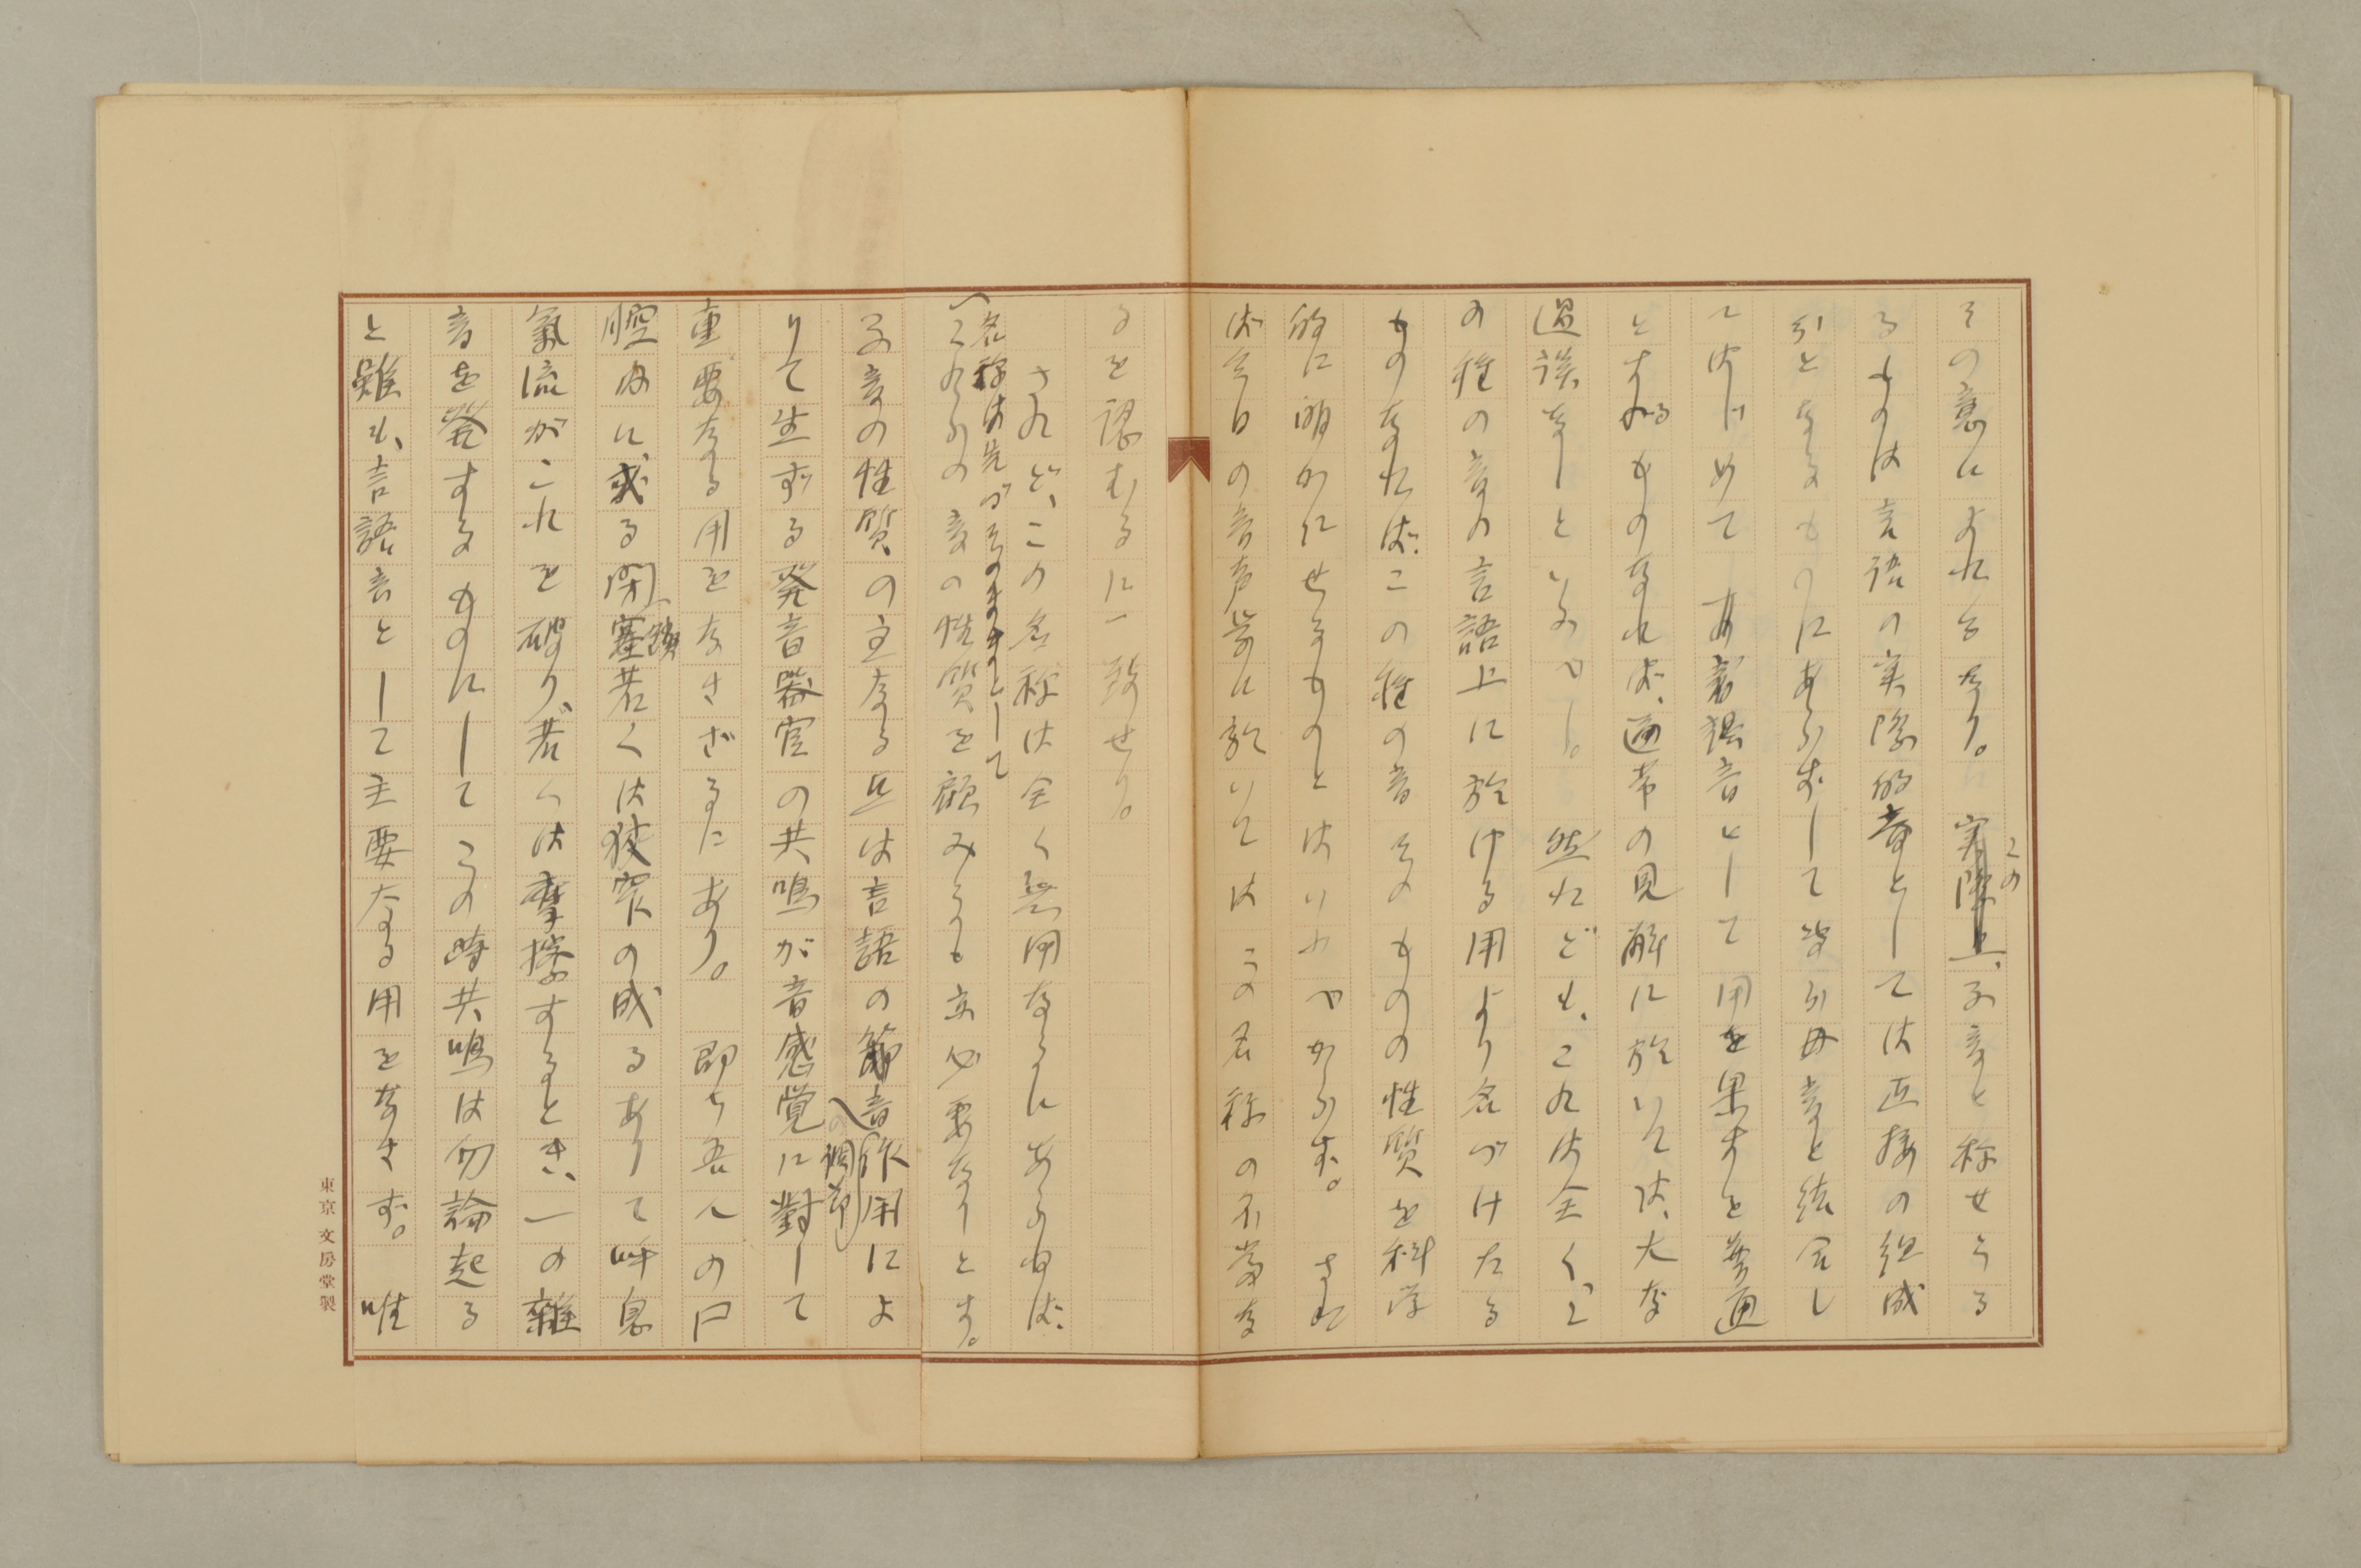 その意によれるなり。この子音と称せらる
るものは言語の実際的音としては直接の組成
分となるものにあらずして必ず母音と結合し
てはじめて一音としして用を果すを普通
とするものなれば、通常の見解に於いては、大なる
過誤なしといふべし。然れども、これは全く、こ
の種の音の言語上に於ける用より名づけたる
ものなれば、この種の音そのものの性質を科学
的に明かにせるものとはいふべからず。され
ば今日の音声学に於いてはこの名称の不当な
るを認むるに一致せり。
されど、この名称は全く無用なるにあらねば、
名称は先づそのままとして
これらの音の性質を顧みるを必要なりとす。
子音の性質の主なる点は言語の節音作用によ
の調節
りて生ずる発音器官の共鳴が音感覚に対して
重要なる用をなさざるにあり。即ち吾人の口
腔内に、或る閉鎖若くは狭窄の成るありて呼息
氣流がこれを破り、若くは摩擦するとき、一の雑
音を発するものにしてこの時共鳴は勿論起る
と雖も、言語音として主要なる用をなさず。唯
東京文房堂製